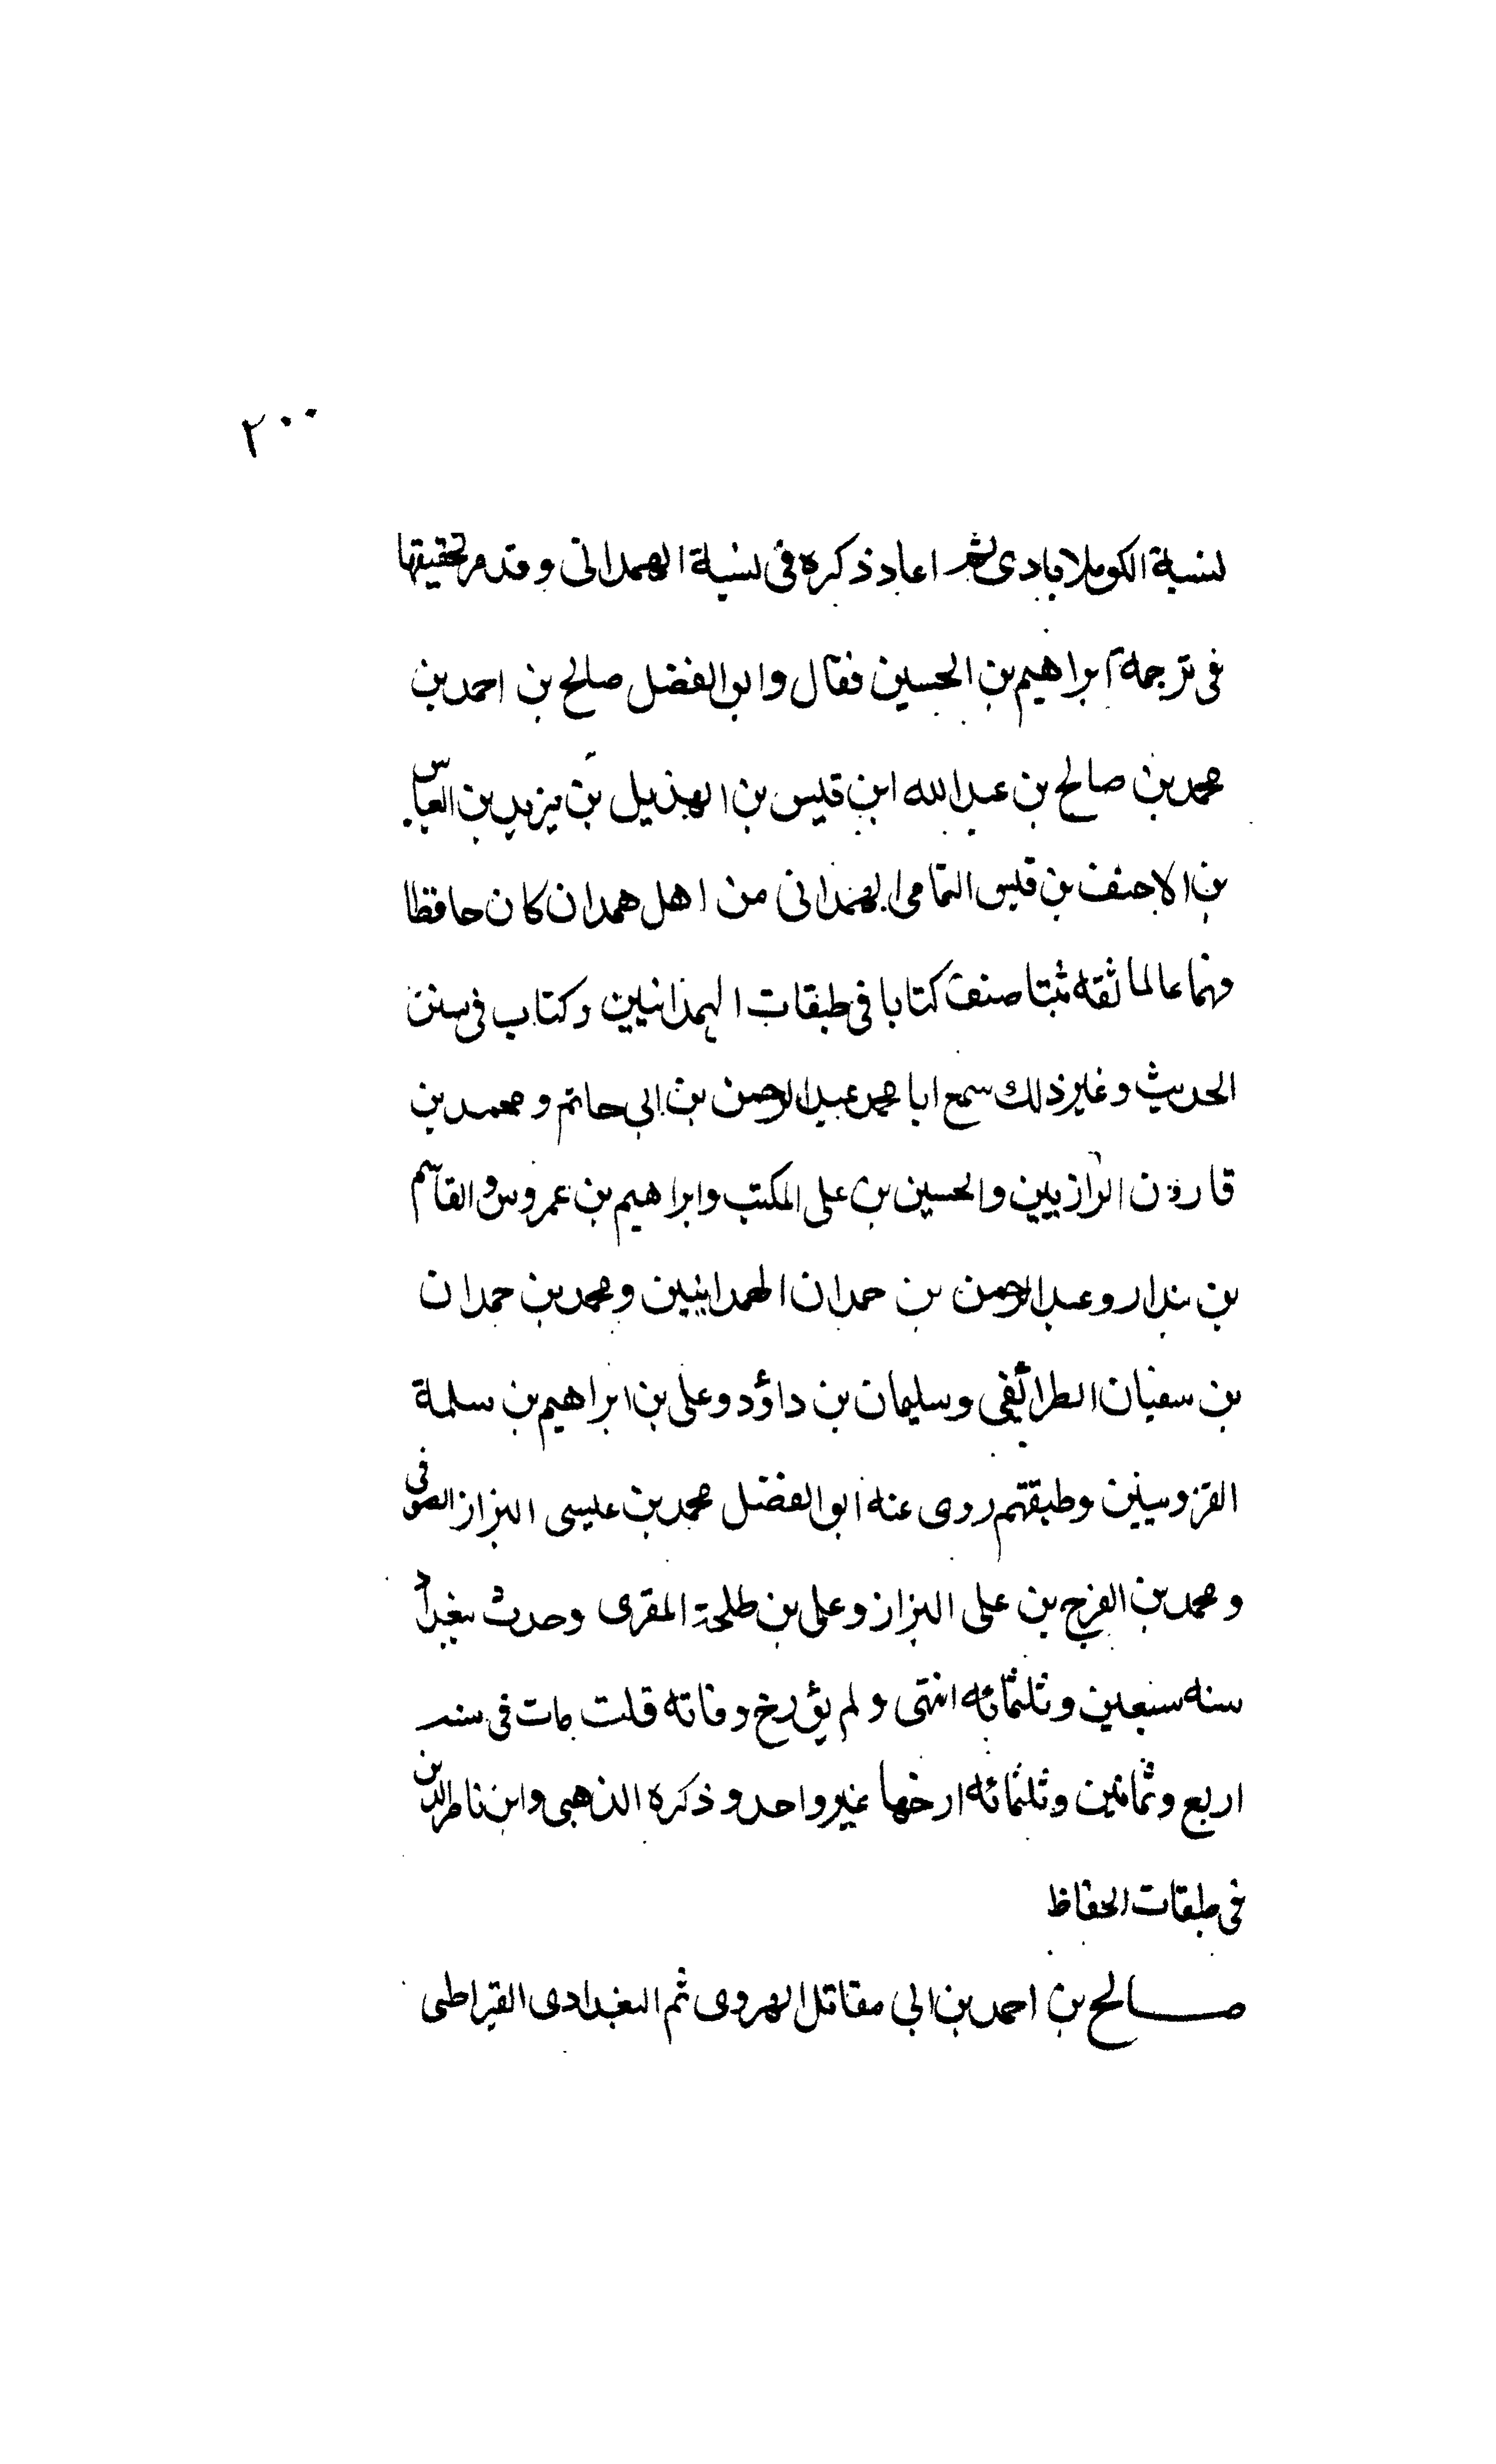 ٢٠٠
لنسبة الكوملاباذى ثم اعاد ذكره فى نسبة الهمدانى وقد مر تحقيقها
فى ترجمة ابراهيم بن الحسين فقال وابو الفضل صالح بن احمد بن
محمد بن صالح بن عبد الله ابن قيس بن الهذيل بن يزيد بن العباس
بن الاحنف بن قيس التمامى الهمدانى من اهل همدان كان حافظا
فهما عالما ثقة ثبتا صنف كتابا فى طبقات الهمذانيين وكتاب فى سنن
الحديث وغير ذلك سمع ابا محمد عبد الرحمن بن ابى حاتم ومحمد بن
قارون الرازيين والحسين بن على المكتب وابراهيم بن عمروس والقاسم
بن بندار وعبد الرحمن بن حمدان الهمدانيين ومحمد بن حمدان
بن سفيان الطرائفى وسليمان بن داؤد وعلى بن ابراهيم بن سلمة
القزوينين وطبقتهم روى عنه ابو الفضل محمد بن عيسى البزاز الصوفى
ومحمد بن الفرج بن على البزاز وعلى بن طلحة المقرى وحدث ببغداد
سنه سبعين وثلثمائه انتهى ولم يؤرخ وفاته قلت مات فى سنه
اربع وثمانين وثلثمائه ارخها غير واحد وذكره الذهبى وابن ناصر الدين
فى طبقات الحفاظ
صالح بن احمد بن ابى مقاتل الهروى ثم البغدادى القيراطى